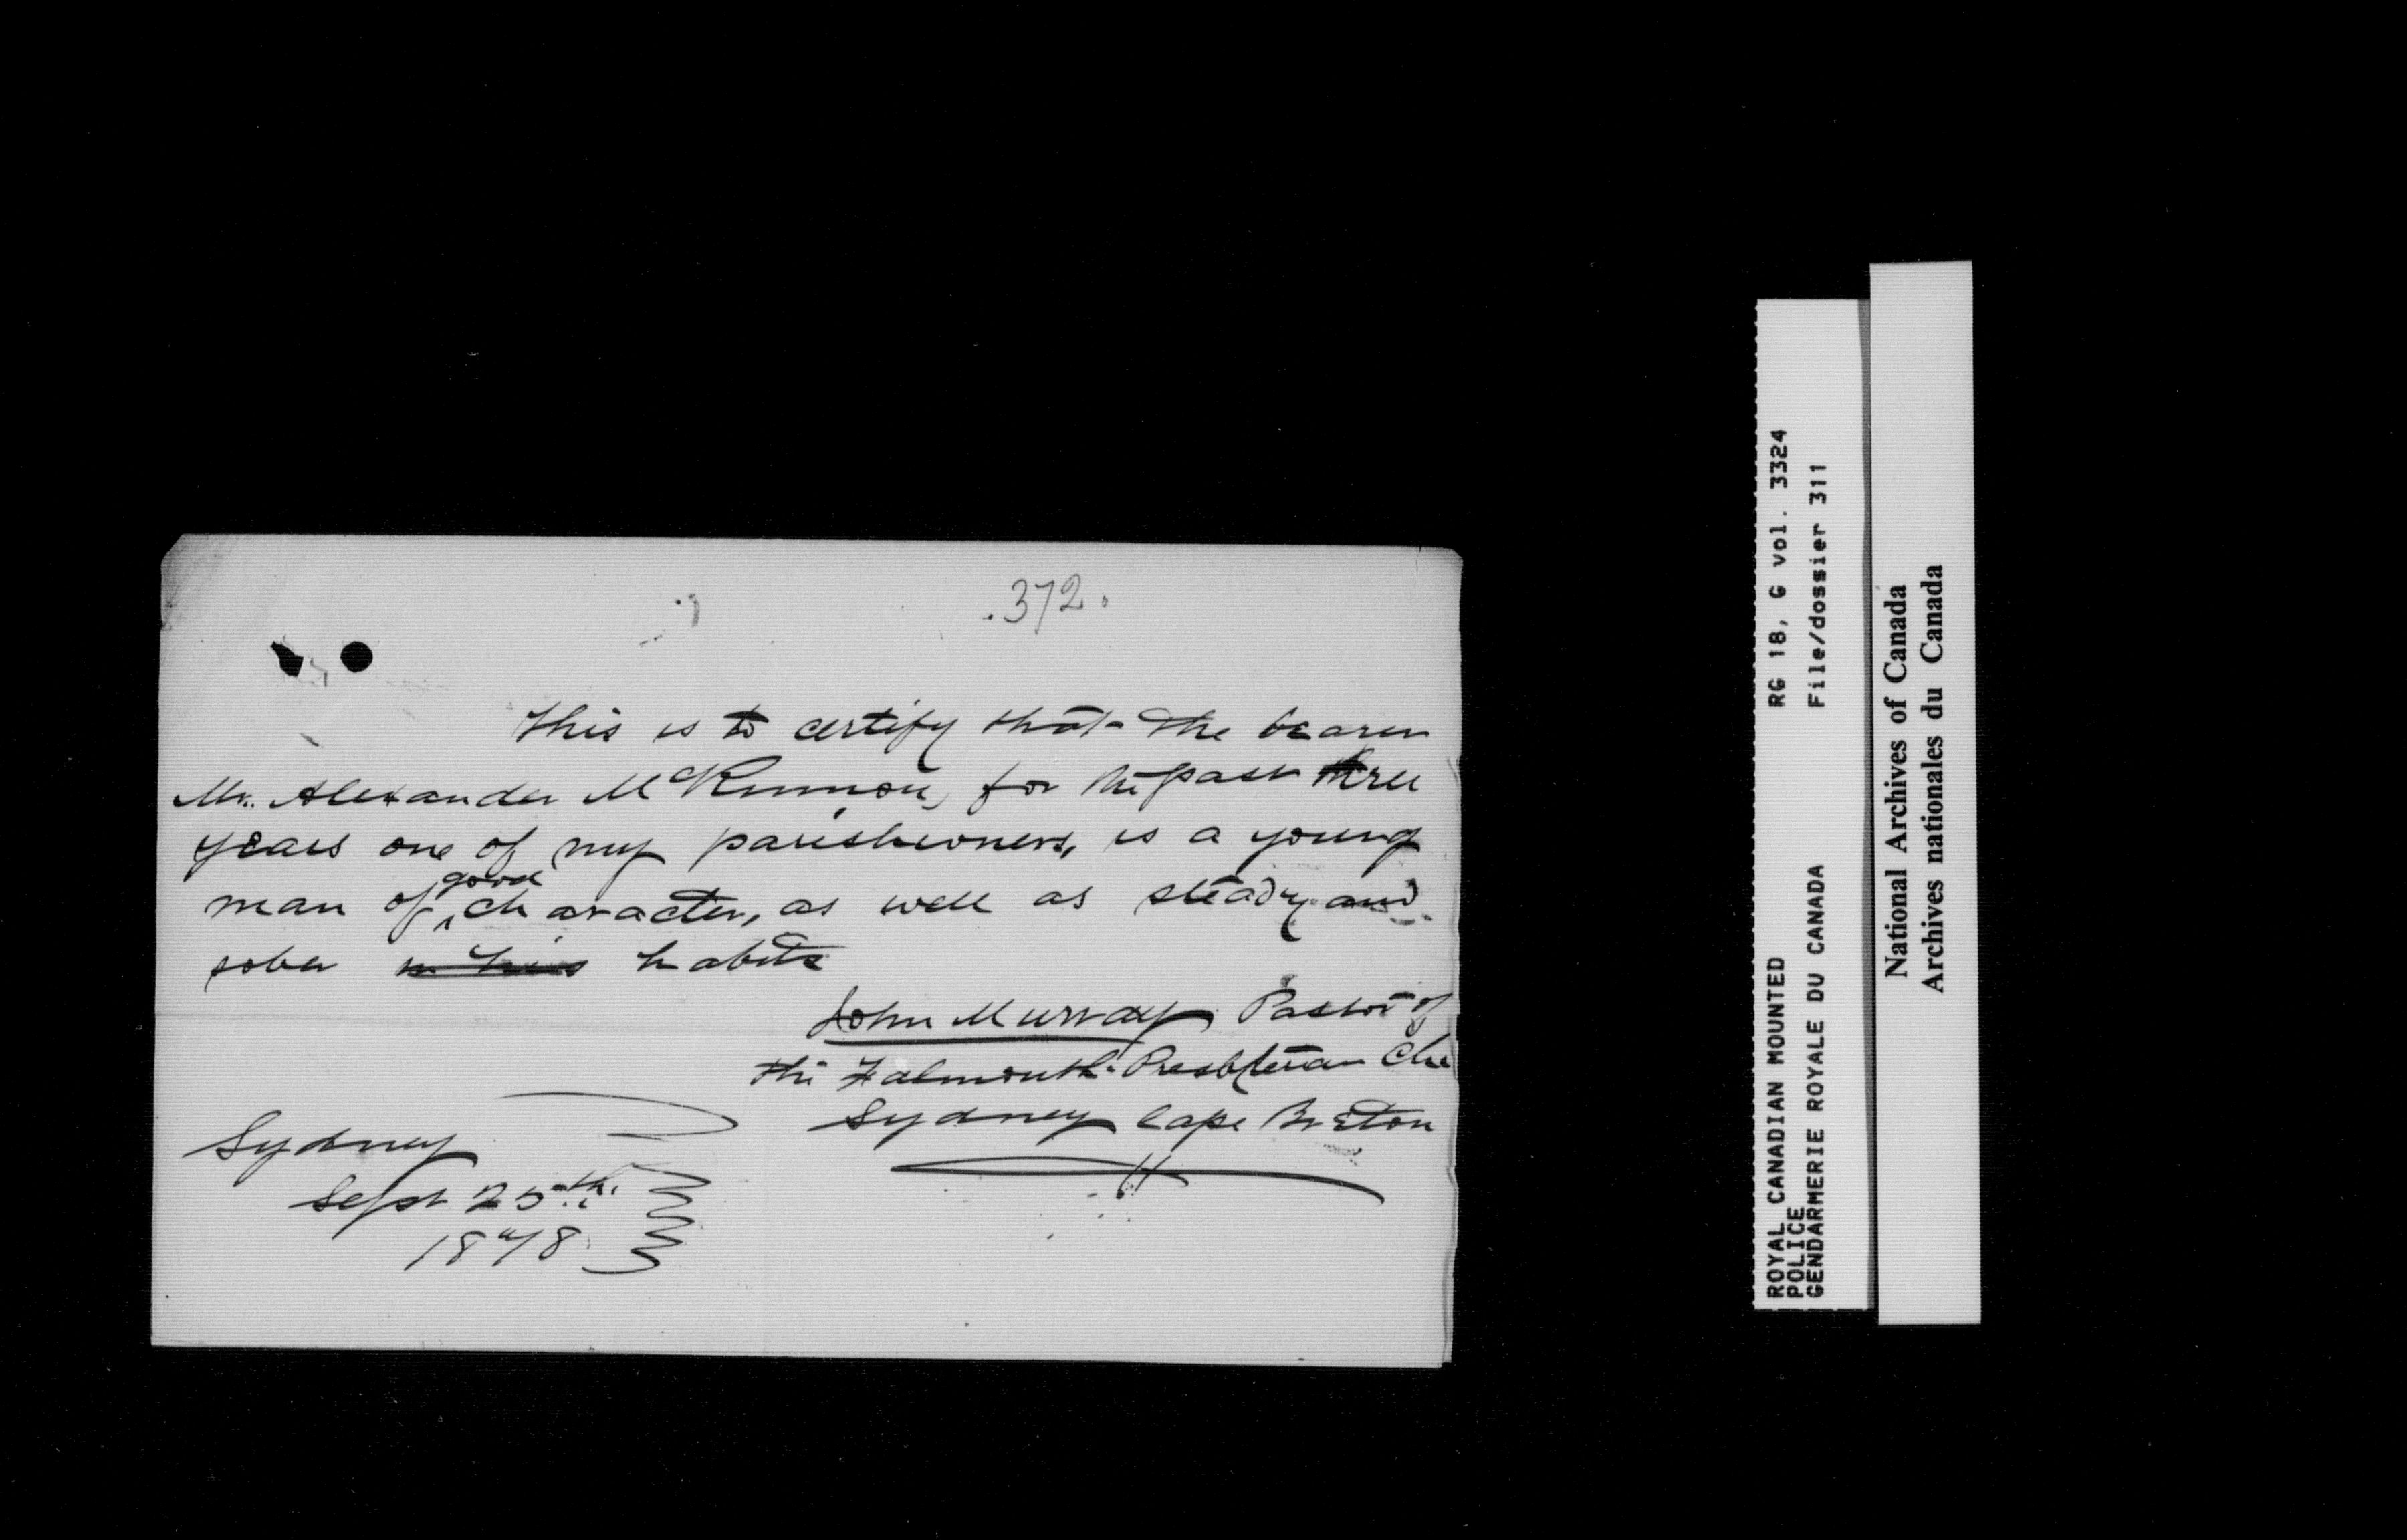 .372.
This is to certify that the bearer
Mr. Alexander McKinnon, for the past three
years one of my parishioners, is a young
man of good character, as well as steady and
sober in his habits
John Murray Pastor of
the Falmouth Presbyterian Ch
Sydney Cape Breton
Sydney
Sept 25th
1878
ROYAL CANADIAN MOUNTED
POLICE
GENDARMERIE ROYALE DU CANADA
RG 18, G vol. 3324
File/dossier 311
National Archives of Canada
Archives nationales du Canada